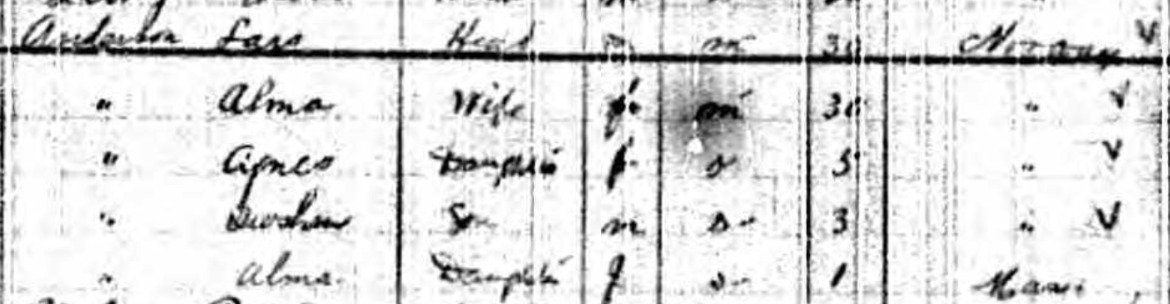 Anderson Lars Head m m 30 Norway
" Alma Wife f m 30 "
" Agnes Daughter f s 5 "
" Son m s 3 "
" Alma Daughter f s 1